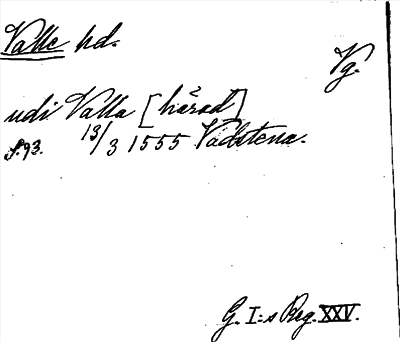 Valle hd.
Vg.
udi Valla [härad]
S. 93. 13/3 1555 Vadstena.
G. I:s Reg. XXV.